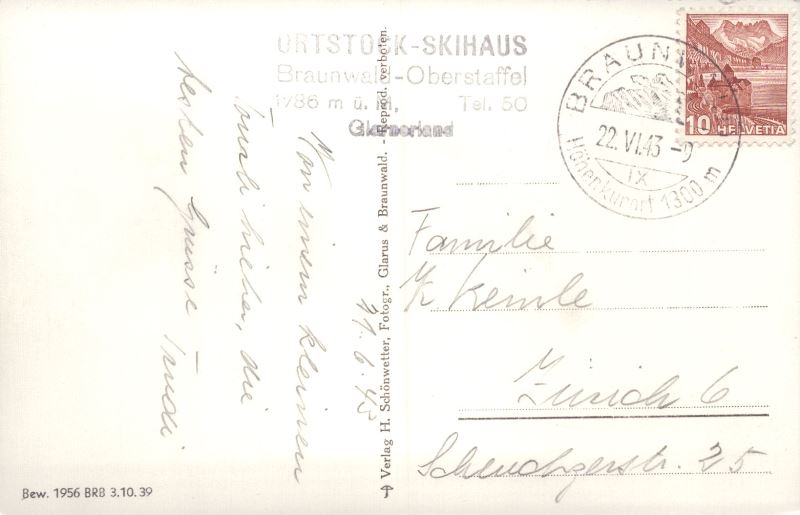 ORTSTOCK-SKIHAUS
Braunwald-Oberstaffel
1786 m ü. M. Tel. 50
Glarnerland
BRAUNWALD
22.VI.43 -9
IX
Höhenkurort 1300 m
10 HELVETIA
21.6.43
Von einem kleinen
Tourli hieher, die
besten Grüsse Trudi
Verlag H. Schönwetter, Fotogr., Glarus & Braunwald. - Reprod. verboten.
Familie
K Keinle
Zürich 6
Scheuchzerstr. 25
Bew. 1956 BRB 3.10.39